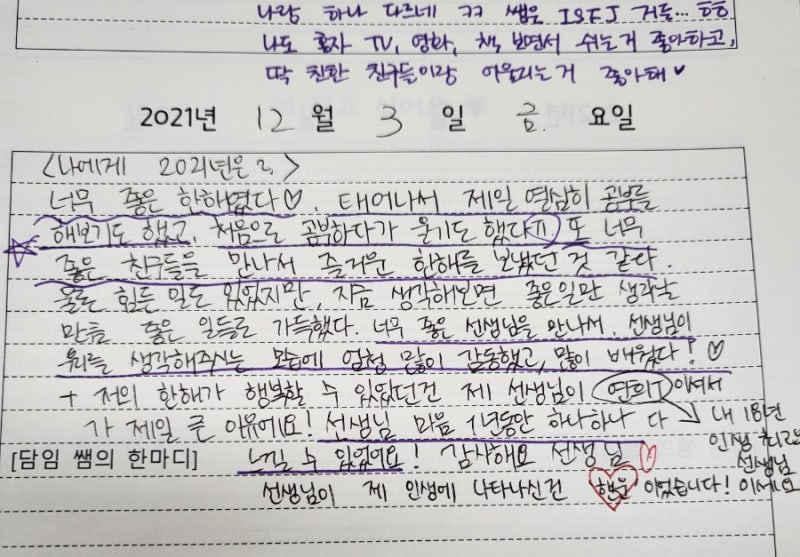 나랑 하나 다르네 ㅋㅋ 쌤은 ISFJ 거든... ㅎㅎ
나도 혼자 TV, 영화, 책 보면서 쉬는거 좋아하고,
딱 친한 친구들이랑 어울리는거 좋아해♥
2021년 12 월 3 일 금 요일
<나에게 2021년은?>
너무 좋은 한해였다♡. 태어나서 제일 열심히 공부를
해보기도 했고, 처음으로 공부하다가 울기도 했다ㅠ 또 너무
좋은 친구들을 만나서 즐거운 한해를 보냈던 것 같다.
물론 힘든 일도 있었지만, 지금 생각해보면 좋은일만 생각날
만큼 좋은 일들로 가득했다. 너무 좋은 선생님을 만나서, 선생님이
우리를 생각해주시는 모습에 엄청 많이 감동했고, 많이 배웠다! ♡
+ 저의 한해가 행복할 수 있었던건 제 선생님이 연희T 이셔서
가 제일 큰 이유에요! 선생님 마음 1년동안 하나하나 다
느낄 수 있었어요! 감사해요 선생님♡
[담임 쌤의 한마디]
선생님이 제 인생에 나타나신건 행운 이었습니다!
내 18년
인생 최고
선생님
이세요